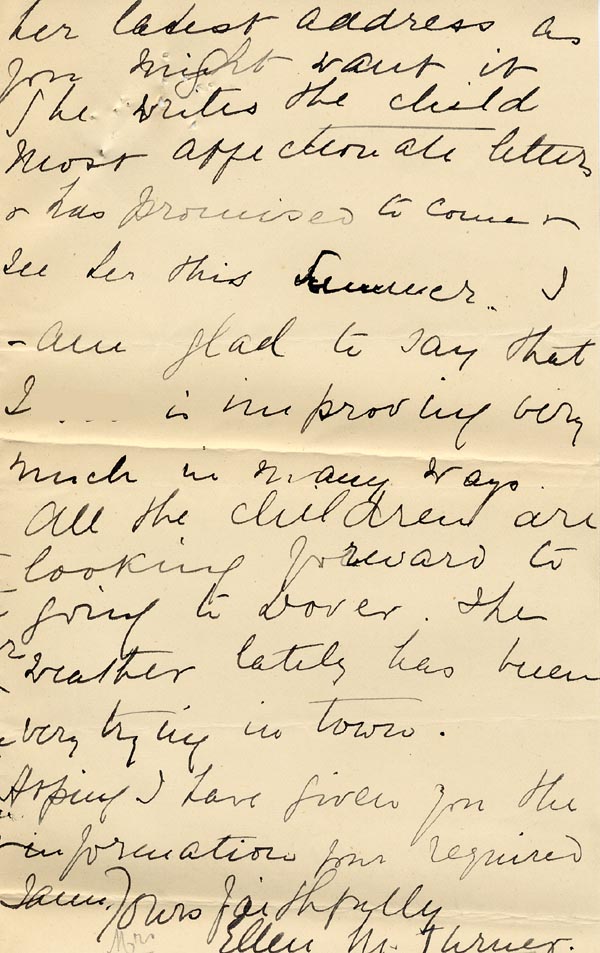 her latest address as
you might want it
She writes the child
most affectionate letters
& has promised to come &
see her this Summer. I
am glad to say that
I.... is improving very
much in many ways.
All the children are
looking forward to
going to Dover. The
weather lately has been
very trying in town.
Hoping I have given you the
information you required
I am, Yours faithfully
Ellen M. Turner.
Mrs